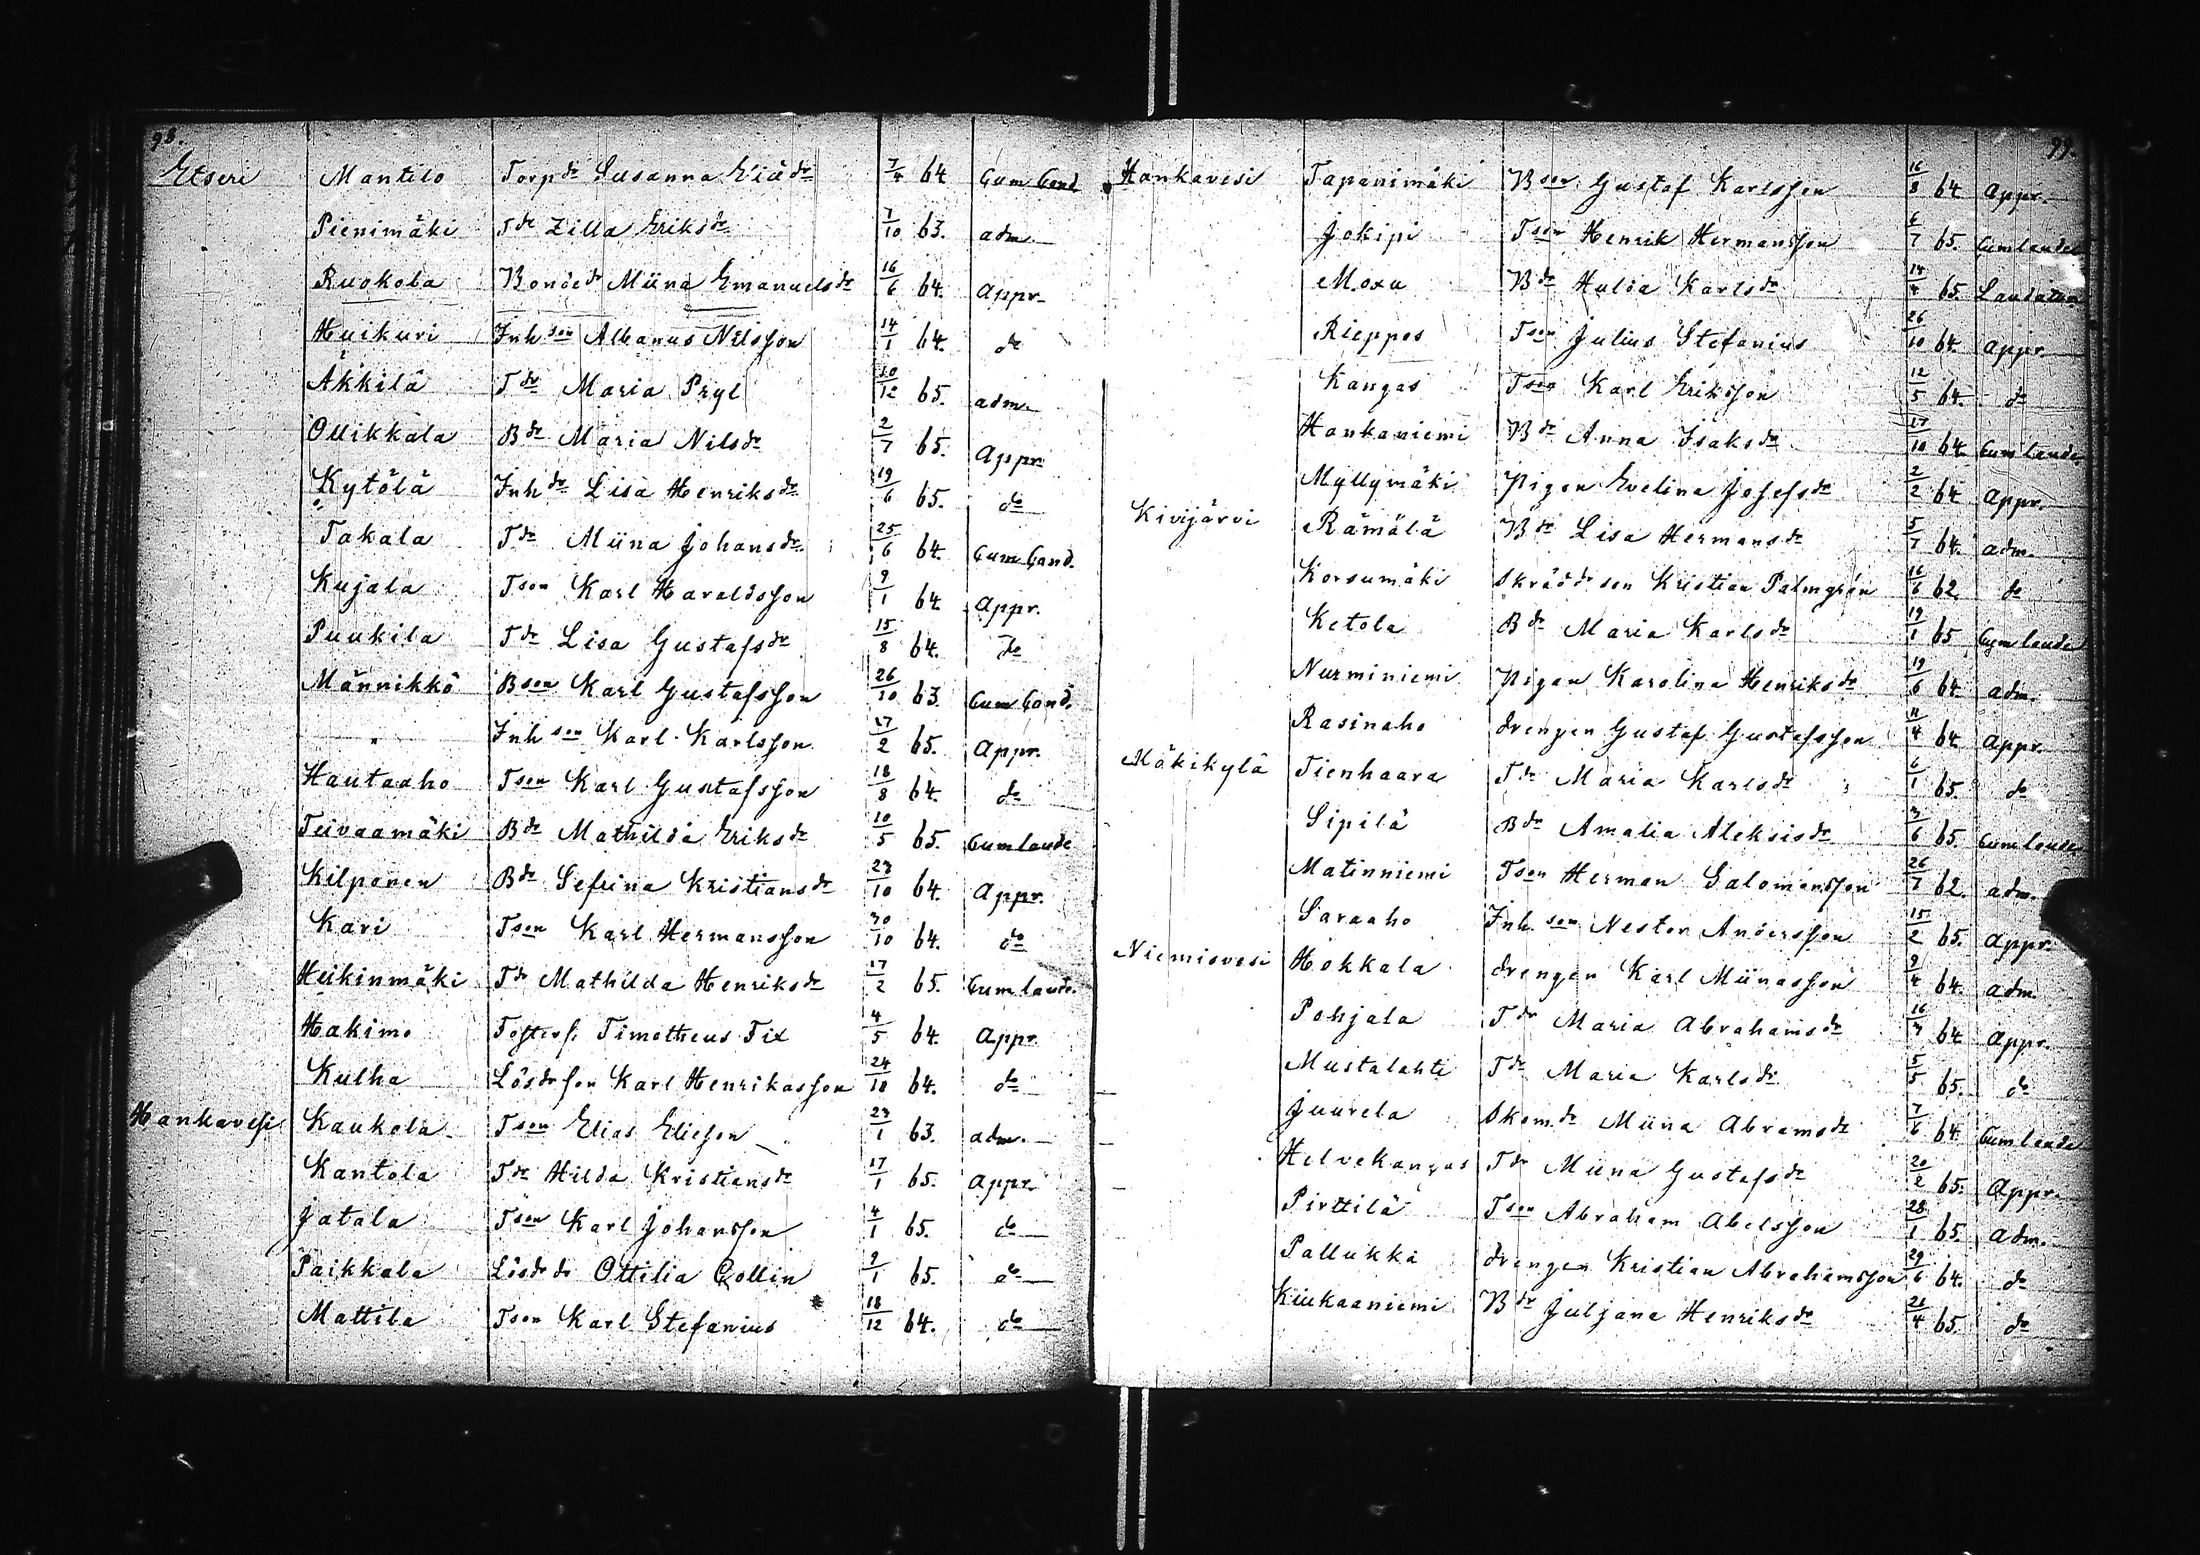 98.
Etseri Mantilo Torp dr Susanna Eliæ dr 7/4 64 Cum Cand
Pienimäki T dr Zilla Eriks dr 7/10 63. adm.
Ruokola Bonde dr Miina Emanuels dr 16/6 64. Appr.
Huikuri Inh son Albanus Nilsson 14/1 64. do
Äkkilä T dr Maria Pryl 10/12 65. adm.
Ollikkala B dr Maria Nils dr 2/7 65. Appr.
Kytölä Inh dr Lisa Henriks dr 19/6 65. do
Takala T dr Miina Johans dr 25/6 64. Cum Cand.
Kujala T son Karl Haraldsson 9/1 64 Appr.
Puukila T dr Lisa Gustafs dr 15/8 64. do
Männikkö B son Karl Gustafsson 26/10 63. Cum Cand.
" Inh son Karl Karlsson 17/2 65. Appr.
Hautaaho T son Karl Gustafsson 18/8 64. do
Teivaamäki B dr Mathilda Eriks dr 10/5 65. Cum laude
Kilponen B dr Sefrina Kristians dr 23/10 64. Appr.
Kari T son Karl Hermansson 30/10 64. do
Heikinmäki T dr Mathilda Henriks dr 17/2 65. Cum laude.
Hakimo Fosters. Timotheus Fix 4/5 64. Appr.
Kulha Lösdr son Karl Henrikasson 24/10 64. do
Hankavesi Kaukola T son Elias Elieson 23/1 63. adm.
Kantola T dr Hilda Kristians dr 17/1 65. Appr.
Jatala T son Karl Johansson 4/1 65. do
Paikkala Lösdr dr Ottilia Collin 2/1 65. do
Mattila T son Karl Stefanius 18/12 64. do
99.
Hankavesi Tapanimäki B son Gustaf Karlsson 16/8 64 Appr.
Jokipi T son Henrik Hermansson 6/7 65. Cum laude
Moxu B dr Hulda Karls dr 14/4 65. Laudatur
Rieppos T son Julius Stefanius 26/10 64. Appr.
Kangas T son Karl Eriksson 12/5 64. do
Hankaniemi B dr Anna Isaks dr 17/10 64. Cum laude.
Myllymäki Pigan Evelina Josefs dr 2/2 64 Appr.
Kivijärvi Rämälä B dr Lisa Hermans dr 5/7 64. adm.
Korsumäki Skrädd son Kristian Palmgrén 16/6 62. do
Ketola B dr Maria Karls dr 19/1 65 Cum laude
Nurminiemi Pigan Karolina Henriks dr 19/6 64. adm.
Rasinaho drengen Gustaf Gustafsson 11/4 64 Appr.
Mäkikylä Tienhaara T dr Maria Karls dr 6/1 65. do
Sipilä B dr Amalia Aleksis dr 3/6 65. Cum laude
Matinniemi T son Herman Salomonsson 26/7 62. adm.
Saraaho Inh. son Nestor Andersson 15/2 65. Appr.
Niemisvesi Hokkala drengen Karl Miinasson 9/4 64. adm.
Pohjala T dr Maria Abrahams dr 16/7 64 Appr.
Mustalahti T dr Maria Karls dr 5/5 65. do
Juurela Skom. dr Miina Abrams dr 7/6 64. Cum laude
Helvekangas T dr Miina Gustafs dr 20/2 65. Appr.
Pirttilä T son Abraham Abelsson 28/1 65. adm.
Pallukka drengen Kristian Abrahamsson 29/6 64. do
Kiukaaniemi B dr Juljana Henriks dr 21/4 65. do